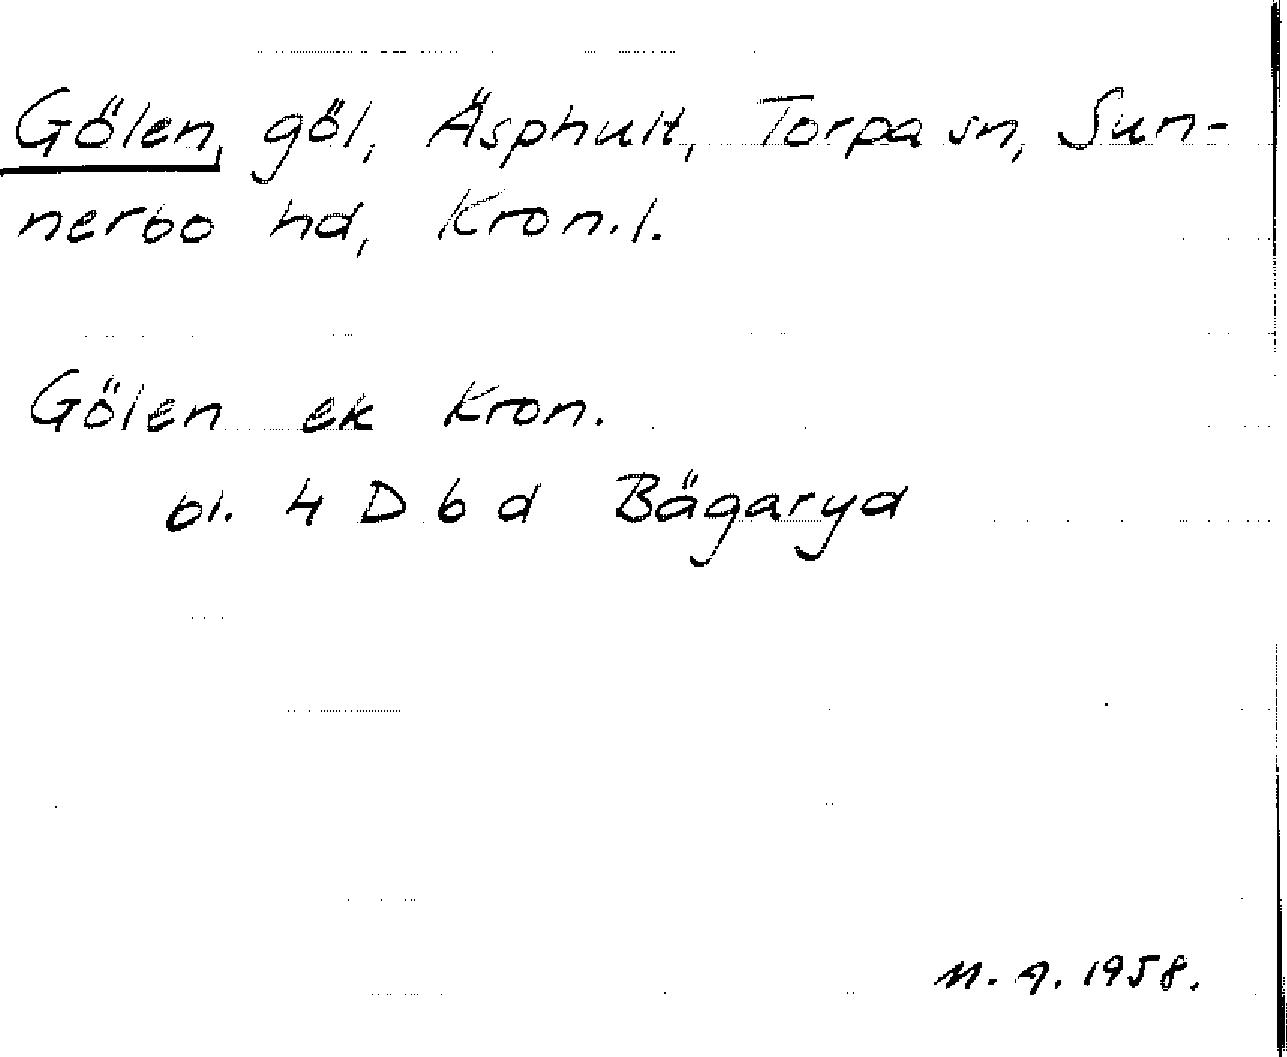 Gölen, göl, Äsphult, Torpa sn, Sun-
nerbo hd, Kron.l.
Gölen ek Kron.
bl. 4 D 6 d Bägaryd
M. A. 1958.